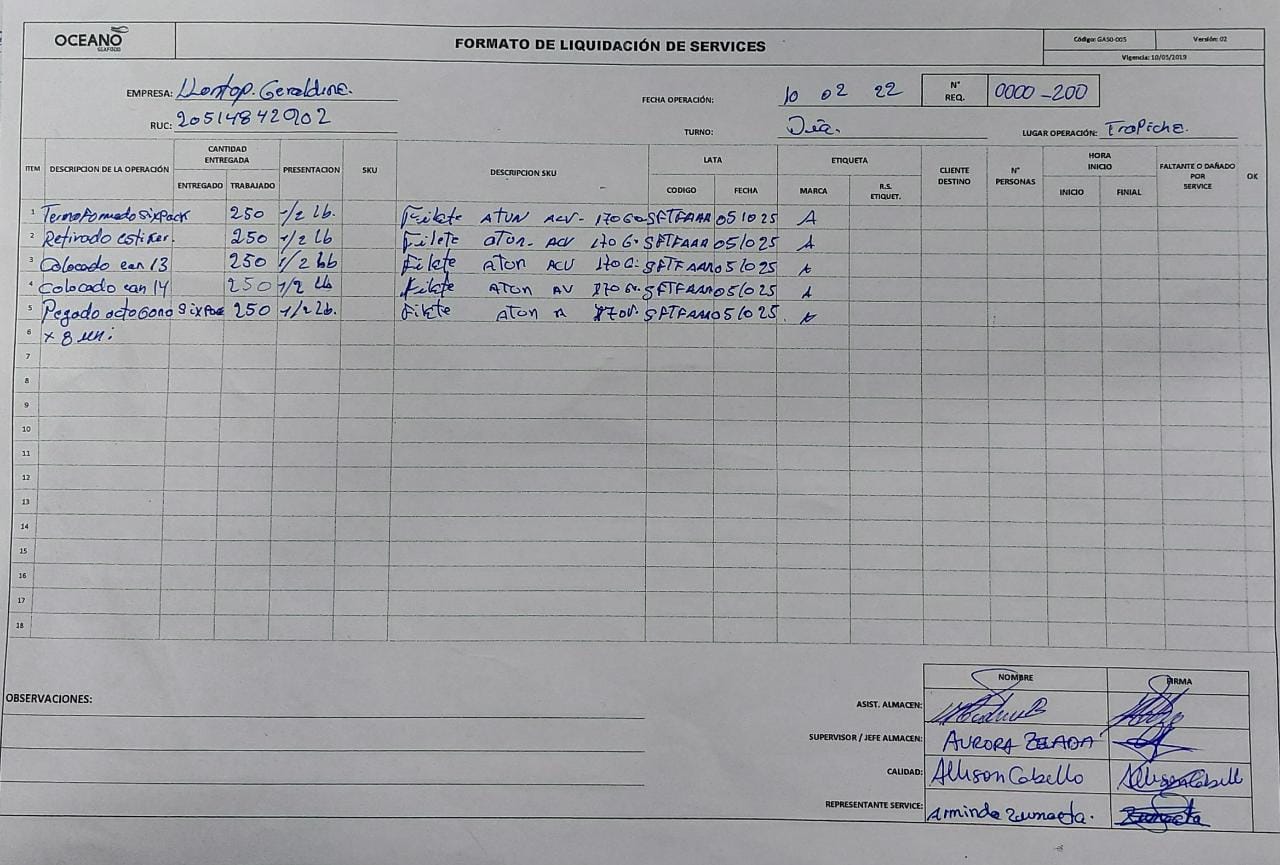 OCEANO
SEAFOOD
FORMATO DE LIQUIDACIÓN DE SERVICES
Código: GASO-005 Versión: 02
Vigencia: 10/05/2019
EMPRESA: Llontop. Geraldine.
RUC: 20514842902
FECHA OPERACIÓN: 10 02 22
N° REQ. 0000-200
TURNO: Día.
LUGAR OPERACIÓN: Trapiche.
ITEM DESCRIPCION DE LA OPERACIÓN CANTIDAD ENTREGADA PRESENTACION SKU DESCRIPCION SKU LATA ETIQUETA CLIENTE DESTINO N° PERSONAS HORA INICIO FALTANTE O DAÑADO POR SERVICE OK
ENTREGADO TRABAJADO CODIGO FECHA MARCA R.S. ETIQUET. INICIO FINIAL
1 Termoformado SixPack 250 1/2 Lb. Filete ATUN ACV- 170G SFTFAAA 051025 A
2 Retirado estiker. 250 1/2 Lb Filete aton- ACV 170 G. SFTFAAA 051025 A
3 Colocado ean 13 250 1/2 Lb Filete aton ACV 170 G. SFTFAAA 051025 A
4 Colocado ean 14 250 1/2 Lb Filete ATON AV 170 G. SFTFAAA 051025 A
5 Pegado octogono Sixpac 250 1/2 Lb. Filete aton A 170 SFTFAAA 051025. A
6 x 8 un.
7
8
9
10
11
12
13
14
15
16
17
18
NOMBRE FIRMA
OBSERVACIONES:
ASIST. ALMACEN:
SUPERVISOR / JEFE ALMACEN: AURORA ZELADA
CALIDAD: Allison Cabello Allison Cabell
REPRESENTANTE SERVICE: Arminda Zumaeta. Zumaeta